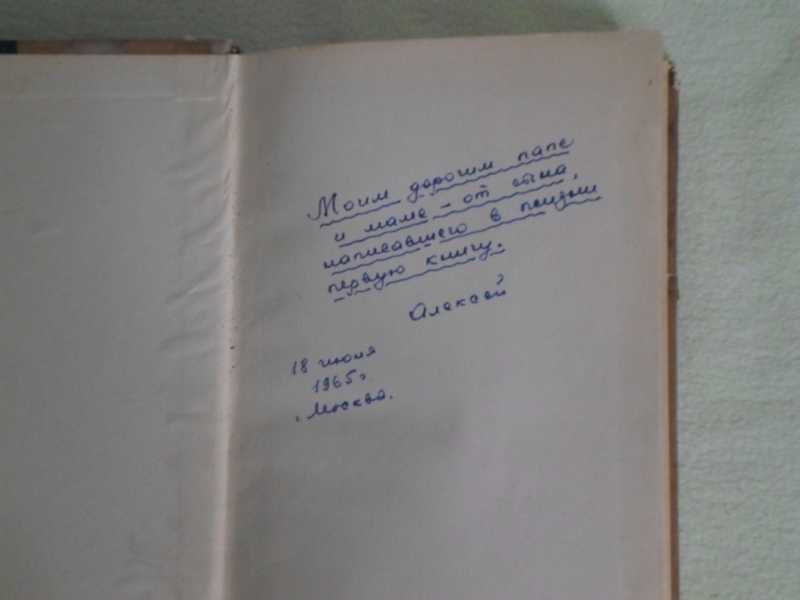 Моим дорогим папе
и маме - от сына,
написавшего в жизни
первую книгу.
Алексей
18 июня
1965г
г. Москва.